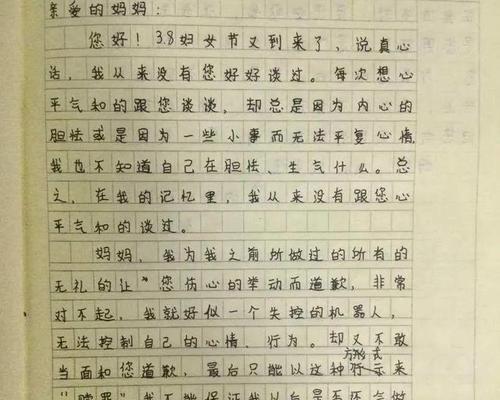 亲爱的妈妈:
您好!3.8妇女节又到来了,说真心
话,我从来没有您好好谈过。每次想心
平气和的跟您谈谈,却总是因为内心的
胆怯或是因为一些小事而无法平复心情,
我也不知道自己在胆怯、生气什么。总
之,在我的记忆里,我从来没有跟您心
平气和的谈过。
妈妈,我为我之前所做过的所有的
无礼的让“您伤心的举动而道歉,非常
对不起,我就好似一个失控的机器人,
无法控制自己的心情、行为。却又不敢
当面和您道歉,最后只能以这种方式来
“赎罪”我不能保证我以后是否还气做